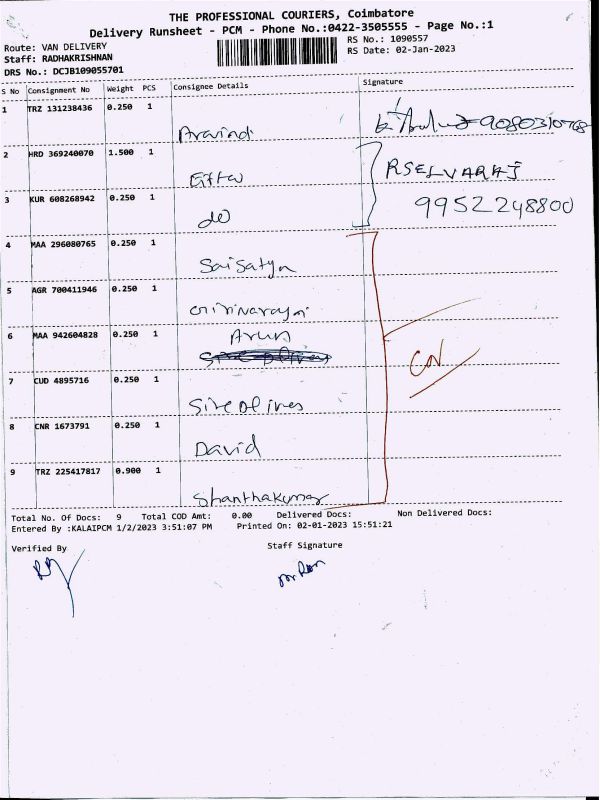 THE PROFESSIONAL COURIERS, Coimbatore
Delivery Runsheet - PCM - Phone No.:0422-3505555 - Page No.:1
Route: VAN DELIVERY
RS No.: 1090557
Staff: RADHAKRISHNAN
RS Date: 02-Jan-2023
DRS No.: DCJB109055701
S No Consignment No Weight PCS Consignee Details Signature
1 TRZ 131238436 0.250 1
Aravind 9080310768
2 HRD 369240070 1.500 1
RSELVARAJ
3 KUR 608268942 0.250 1
9952248800
do
4 MAA 296080765 0.250 1
Saisatya
5 AGR 700411946 0.250 1
6 MAA 942604828 0.250 1
Arun
7 CUD 4895716 0.250 1
8 CNR 1673791 0.250 1
David
9 TRZ 225417817 0.900 1
Shanthakumar
Total No. Of Docs: 9 Total COD Amt: 0.00 Delivered Docs: Non Delivered Docs:
Entered By :KALAIPCM 1/2/2023 3:51:07 PM Printed On: 02-01-2023 15:51:21
Verified By Staff Signature